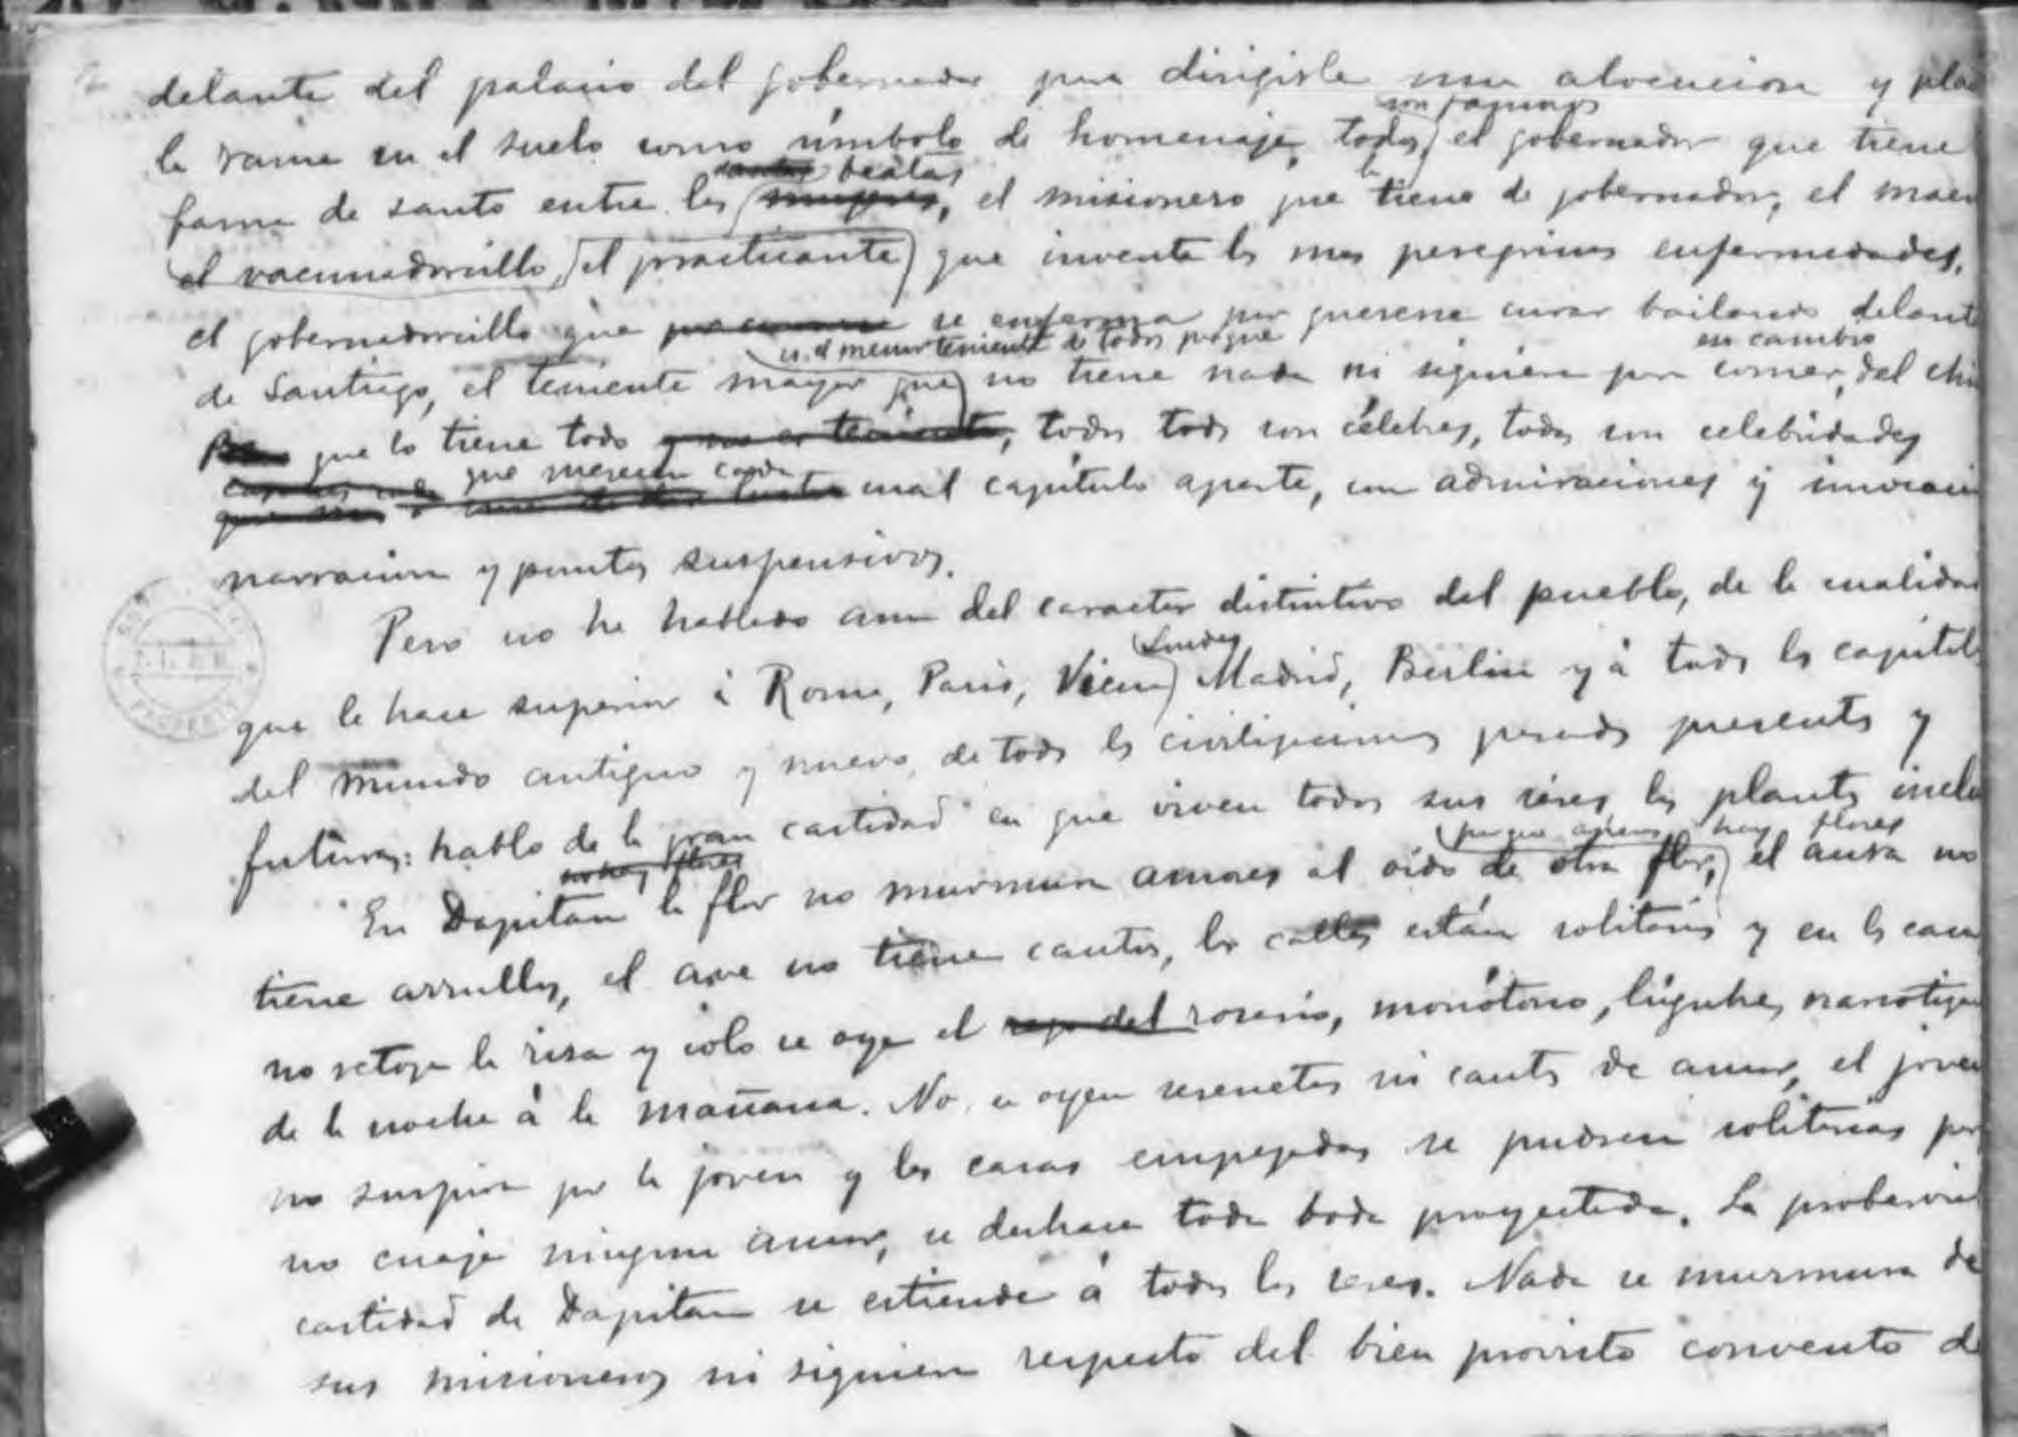 delante del palacio del gobernador para dirigirle una alocucion y
la rama en el suelo como símbolo de homenaje, todos son famosos el gobernador que tiene
fama de santo entre las beatas, el misionero que la tiene de gobernador, el
el vacunadorcillo, el practicante que inventa las mas peregrinas enfermedades,
el gobernadorcillo que se enferma por quererse curar bailando delante
de Santiago, el teniente mayor que es el menor teniente de todos porque no tiene nada ni siquiera para comer, en cambio del
que lo tiene todo, todos todos son célebres, todos son celebridades
que merecen cada cual capítulo aparte, con admiraciones y
narracion y puntos suspensivos.
Pero no he hablado aun del caracter distintivo del pueblo, de la cualidad
que le hace superior á Roma, Paris, Viena, Londres Madrid, Berlin y á todas las capitales
del mundo antiguo y nuevo, de todas las civilizaciones pasadas presentes y
futuras: hablo de la gran castidad en que viven todos sus séres, las plantas
En Dapitan la flor no murmura amores al oido de otra flor, porque apenas hay flores el aura no
tiene arrullos, el ave no tiene cantos, las calles están solitarias y en las casas
no retoza la risa y solo se oye el rosario, monótono, lúgubre,
de la noche á la mañana. No se oyen serenatas ni cantos de amor, el joven
no suspira por la joven y las casas empezadas se pudren solitarias
no cuaja ningun amor, se deshace toda boda proyectada. La
castidad de Dapitan se estiende á todos los seres. Nada se murmura de
sus misioneros ni siquiera respecto del bien provisto convento de